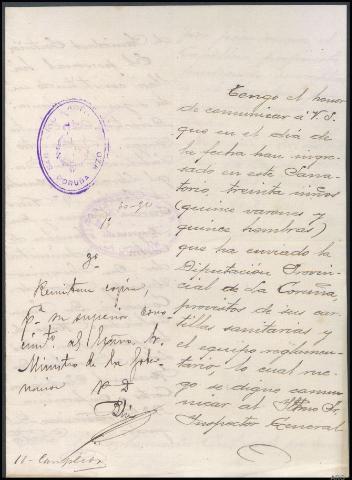 Tengo el honor
de comunicar á V. S.
que en el dia de
la fecha han ingre-
sado en este Sana-
torio, treinta niños
(quince varones y
quince hembras)
que ha enviado la
Diputación Provin-
cial de La Coruña,
provistos de sus car-
tillas sanitarias y
el equipo reglamen-
tario, lo cual rue-
go se digne comu-
nicar al Iltmo Sr.
Inspector General
CORUÑA
Remitase copia,
pª su superior cono
cimtº. al Excmo. Sr.
Ministro de la Gober-
nacion